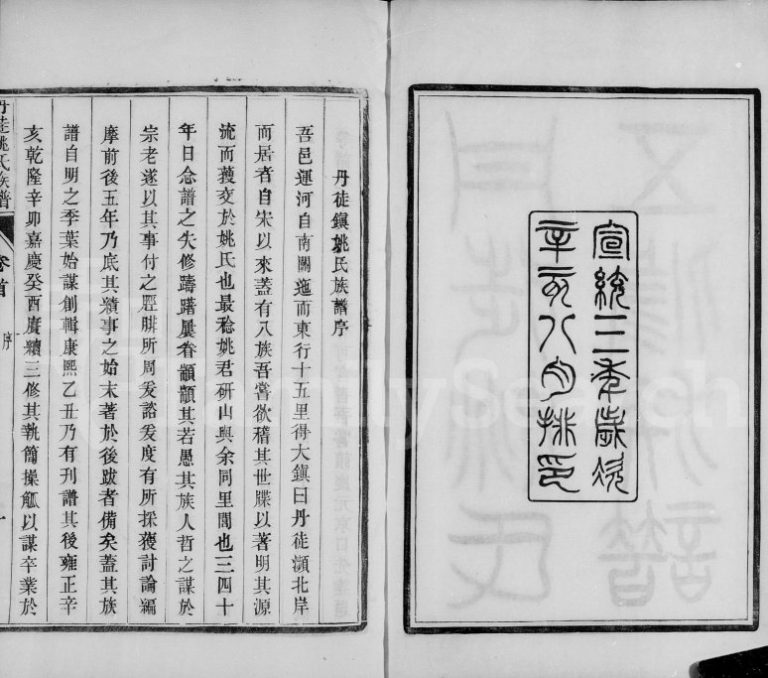 宣統三年歲次
辛亥八月排印
丹徒鎮姚氏族譜序
吾邑運河自南關迤而東行十五里得大鎮曰丹徒瀕北岸
而居者自宋以來蓋有八族吾嘗欲稽其世牒以著明其源
流而獲交於姚氏也最稔姚君研山與余同里閈也三四十
年日念譜之失修躊躇屢眷顓顓其若愚其族人哲之謀於
宗老遂以其事付之脛腓所周爰諮爰度有所採獲討論編
摩前後五年乃底其績事之始末著於後跋者備矣蓋其族
譜自明之季葉始謀創輯康熙乙丑乃有刊譜其後雍正辛
亥乾隆辛卯嘉慶癸酉賡續三修其執簡操觚以謀卒業於
丹徒姚氏族譜 卷首 序 一